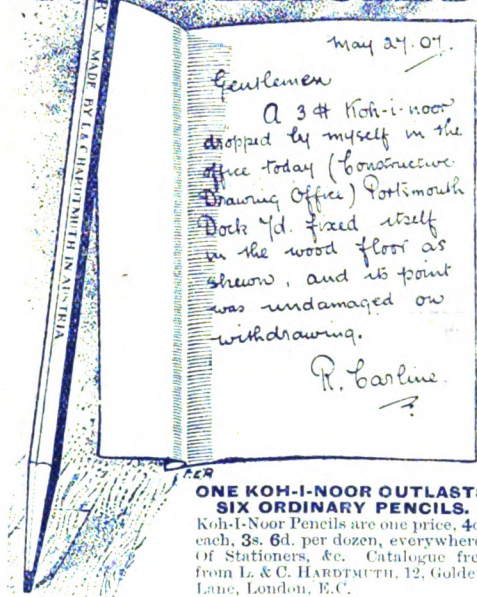 R X MADE BY L & C HARDTMUTH IN AUSTRIA
May 27.07.
Gentlemen
A 3 H Koh-i-noor
dropped by myself in the
office today (Constructive
Drawing Office) Portsmouth
Dock Yd. fixed itself
in the wood floor as
shewn, and its point
was undamaged on
withdrawing.
R. Carline.
ONE KOH-I-NOOR OUTLASTS
SIX ORDINARY PENCILS.
Koh-I-Noor Pencils are one price, 4d
each, 3s. 6d. per dozen, everywhere
Of Stationers, &c. Catalogue fre
from L. & C. HARDTMUTH. 12, Golde
Lane, London, E.C.